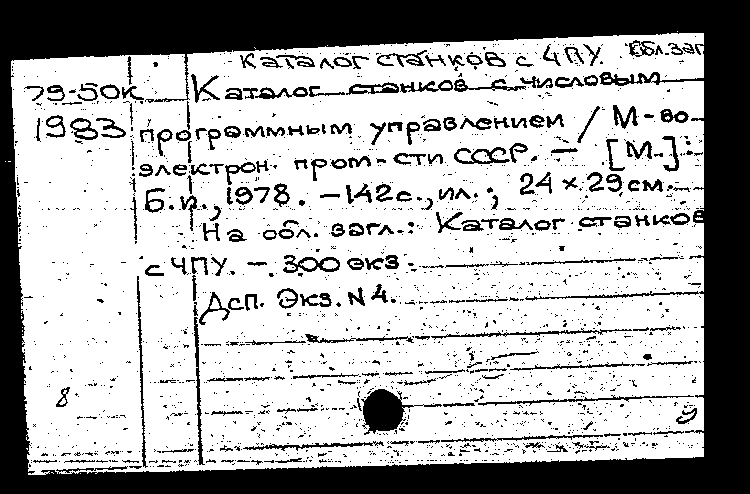 Каталог станков с ЧПУ Обл.заг
79-50к Каталог станков с числовым
1983 программным управлением / М-во
электрон. пром-сти СССР. — [М.]:
Б.и., 1978. — 142с., ил.; 24 × 29 см.
На обл. загл.: Каталог станков
с ЧПУ. — 300 экз.
Дсп. Экз. N 4.
8